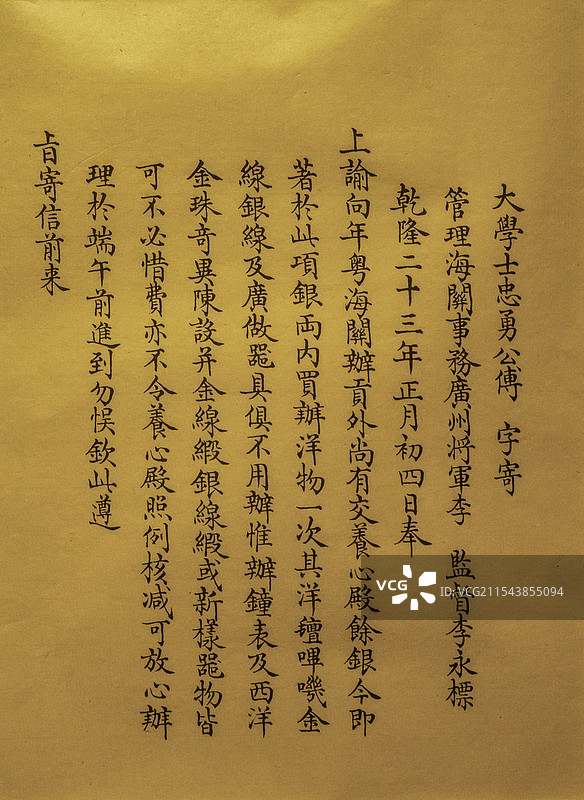 大學士忠勇公傅 字寄
管理海關事務廣州将軍李 監督李永標
乾隆二十三年正月初四日奉
上諭向年粤海關辦貢外尚有交養心殿餘銀今即
著於此項銀両内買辦洋物一次其洋氊嗶嘰金
線銀線及廣做器具俱不用辦惟辦鐘表及西洋
金珠竒異陳設并金線緞銀線緞或新樣器物皆
可不必惜費亦不令養心殿照例核减可放心辦
理於端午前進到勿悮欽此遵
旨寄信前来
VCG
VCG.COM
ID:VCG211543855094